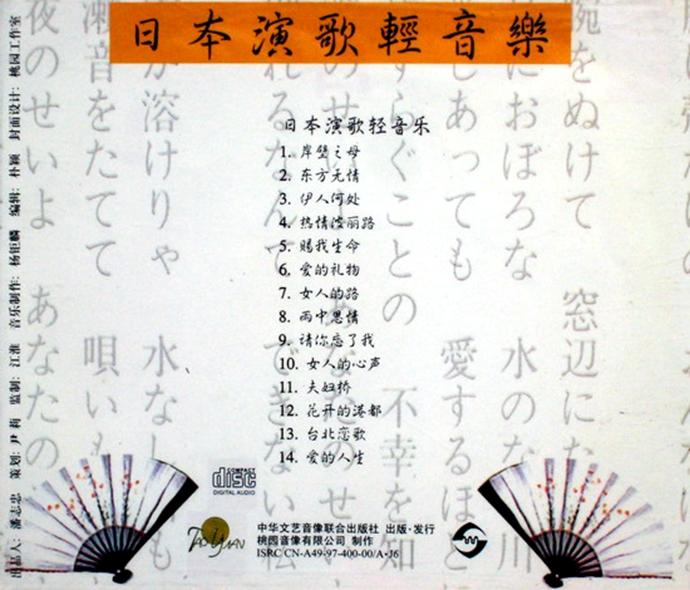 日本演歌輕音樂
日本演歌轻音乐
1. 岸壁之母
2. 东方无情
3. 伊人何处
4. 热情凌丽路
5. 赐我生命
6. 爱的礼物
7. 女人的路
8. 雨中思情
9. 请你忘了我
10. 女人的心声
11. 夫妇桥
12. 花开的港都
13. 台北恋歌
14. 爱的人生
COMPACT
disc
DIGITAL AUDIO
TAO YUAN
中华文艺音像联合出版社 出版·发行
桃园音像有限公司 制作
ISRC CN-A49-97-400-00/A·J6
出品人: 潘志忠 策划: 尹莉 监制: 江淮 音乐制作: 杨钜麟 编辑: 朴颖 封面设计: 桃园工作室
腕をぬけて 窓辺にた
におぼろな 水のな 川
しあっても 愛するほど
すらぐことの 不幸を知
夜のせいよ あなたの
瀬音をたてて 唄いも
が溶けりゃ 水なし